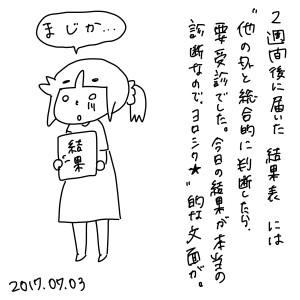 まじか…
結果
2週間後に届いた 結果表 には
"他の外と総合的に判断したら、
要受診でした。今日の結果が本当の
診断なので、ヨロシク★"的な文面が。
2017.07.03